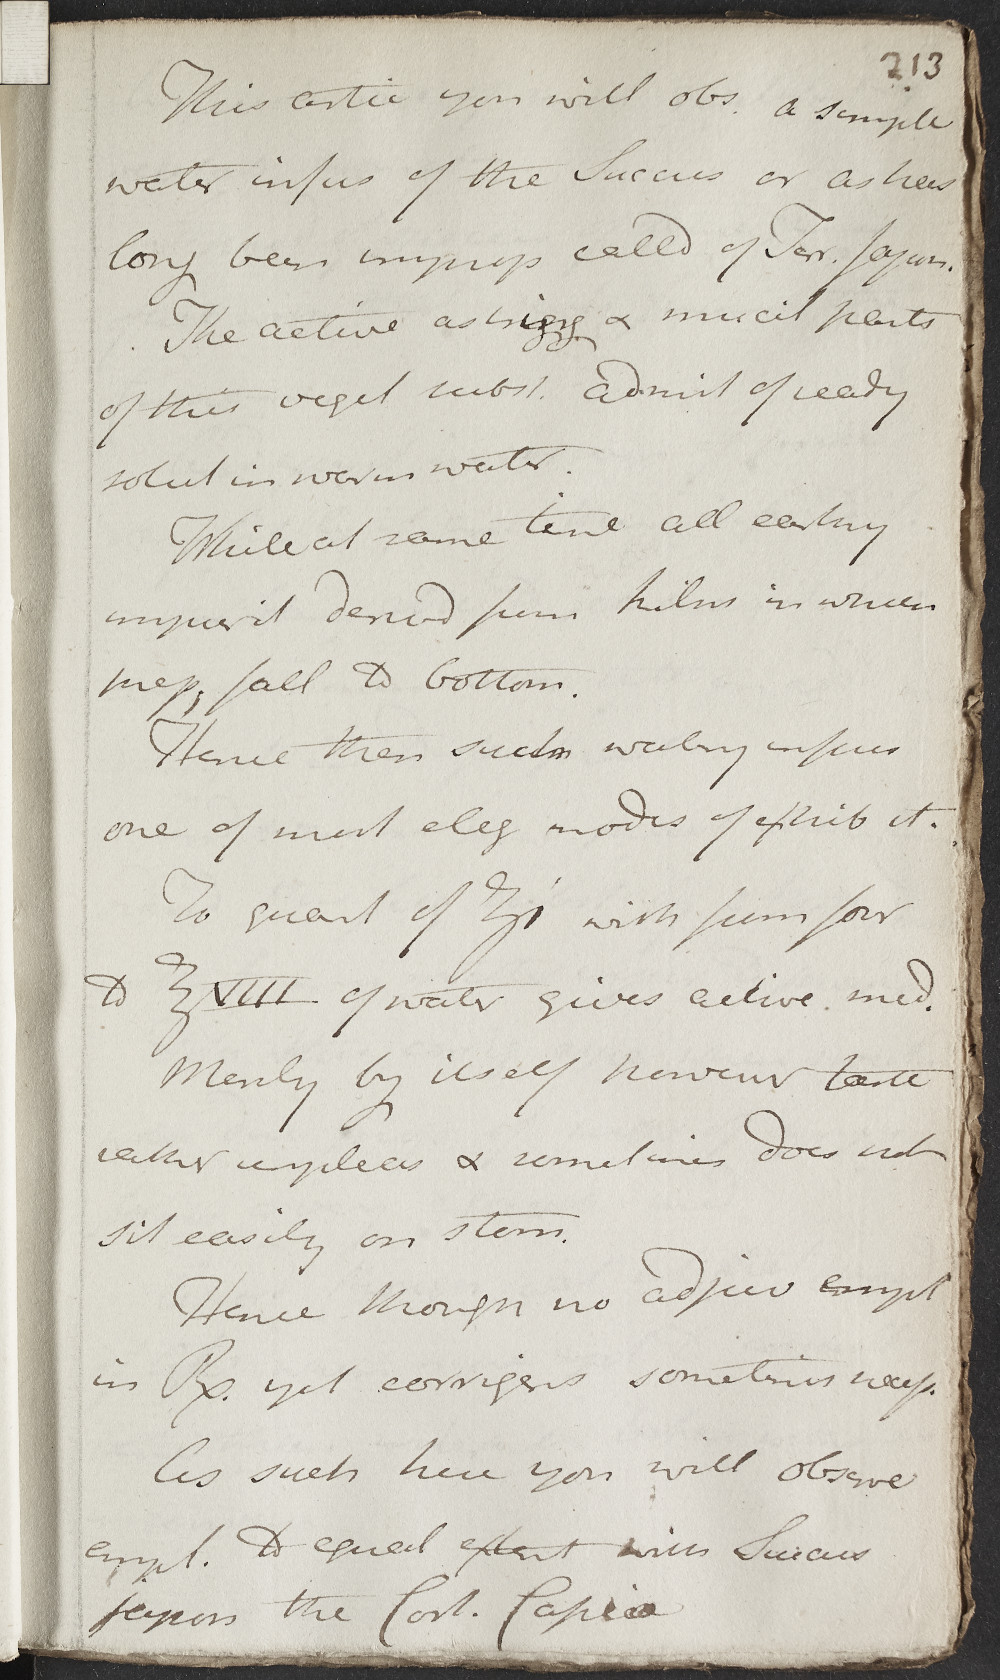 213
This artic you will obs. a simple
water infus of the Succus or as has
long been improp calld of Terr. Japon.
The active astring & mucil parts
of this veget subst. admit of ready
solut in warm water.
While at same time all earthy
impurit derivd from kilns in which
prep, fall to bottom.
Hence then such watery infus
one of most eleg modes of exhib it.
To quant of ʒi with from four
to ℥VIII of water gives active med.
Merely by itself however taste
rather unpleas & sometimes does not
sit easily on stom.
Hence though no adjuv empl
in Rx. yet corrigens sometimes necess.
As such here you will observe
empl. to equal extent with Succus
Japon the Cort. Cassiæ